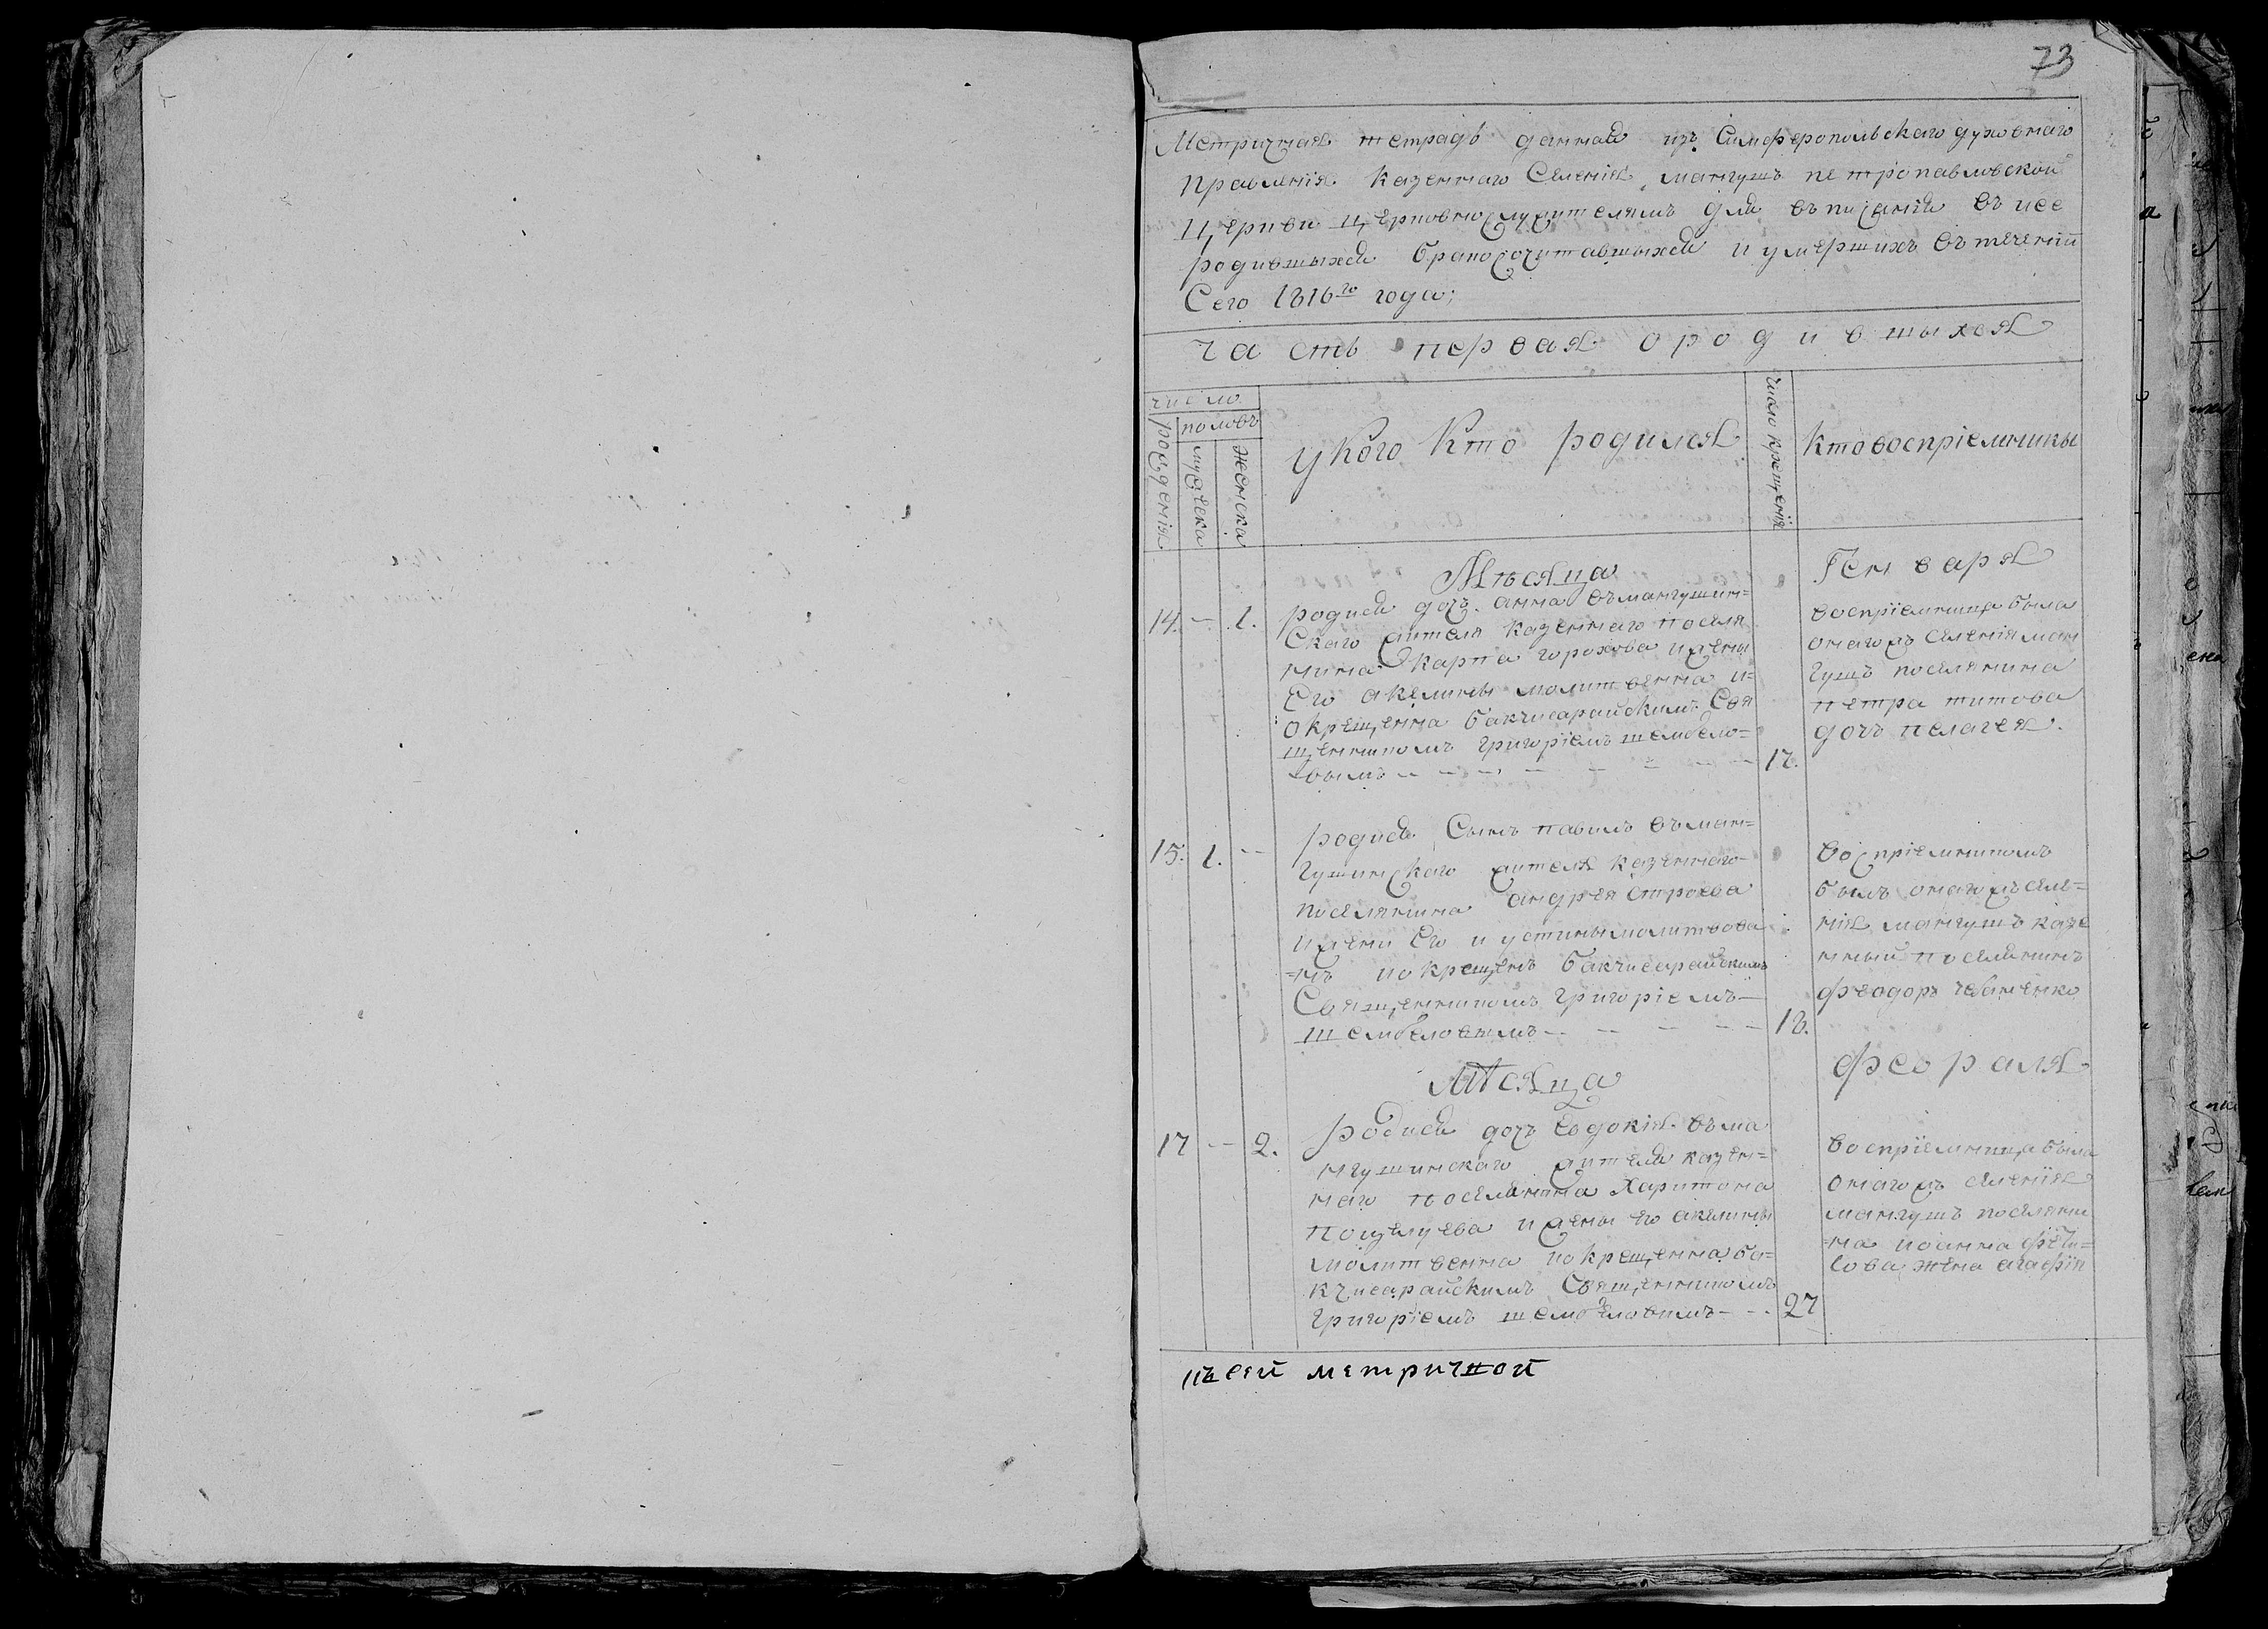 73
Метричная тетрадь данная изъ Симферопольскаго духовнаго
правленія казеннаго Селенія мангушъ петропавловской
церкви церковнослужителямъ для въписанія въ нее
родившыхся бракосочитавшыхся и умершихъ въ теченіи
Сего 1816го года;
часть первая о родившыхся
число
рожденія
половъ
мужеска
женска
у кого кто родился
число крещенія
кто воспріемники
Мѣсяца
Генваря
14. - 1.
родися дочь анна въ мангушин=
скаго жителя казеннаго поселя
нина карпа горохова и жены
Его акелины молитвенна и=
окрещенна бакчисарайскимъ Свя
щенникомъ григоріемъ шембело=
вымъ
17.
воспріемница была
онагожъ селенія ман
гушъ поселянина
петра титова
дочь пелагея.
15. 1. -
родися Сынъ павилъ въ ман=
гушинскаго жителя казеннаго
поселянина андрея строева
и жени Его иустины молитвова
=нъ и окрещенъ бакчисарайскимъ
Священникомъ григоріемъ
шембеловымъ
18.
воспріемникомъ
былъ онагожъ селе=
нія мангушъ казе
нный поселянинъ
феодоръ чебаненко
Мѣсяца
февраля
17 - 2.
родися дочь евдокія въ ма
нгушинскаго жителя казен=
наго поселянина Харитона
поцелуева и жены его акелины
молитвенна и окрещенна ба=
кчисарайскимъ Священникомъ
григоріемъ шембеловымъ
27
воспріемница была
онагожъ селенія
мангушъ поселяни
=на иоанна фети=
сова жена агафія
къ сей метричной